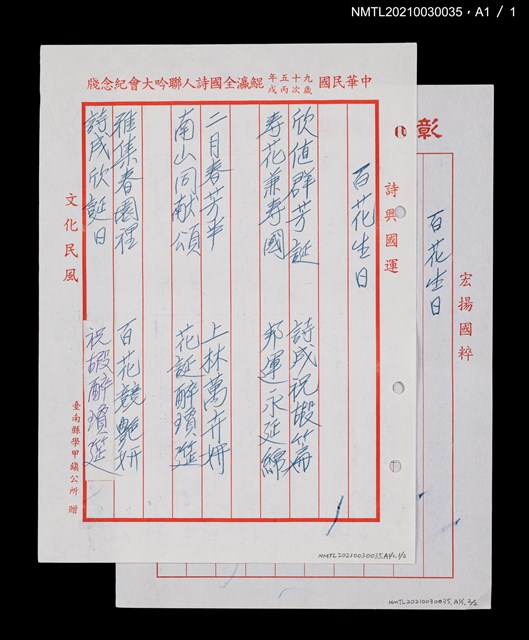 NMTL20210030035，A1 / 1
中華民國九十五年歲次丙戌鯤瀛全國詩人聯吟大會紀念牋
詩興國運
百花生日
欣值群芳誕 詩成祝嘏篇
壽花兼壽國 邦運永延綿
二月春芳半 上林萬卉妍
南山同献頌 花誕醉瓊筵
雅集春園裡 百花競艷妍
詩成欣誕日 祝嘏醉瓊筵
文化民風
臺南縣學甲鎮公所 贈
NMTL20210030035,A1/1,1/2
彰
宏揚國粹
百花生日
NMTL20210030035,A1/1,2/2